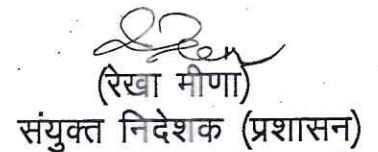 (रेखा मीणा)
संयुक्त निदेशक (प्रशासन)